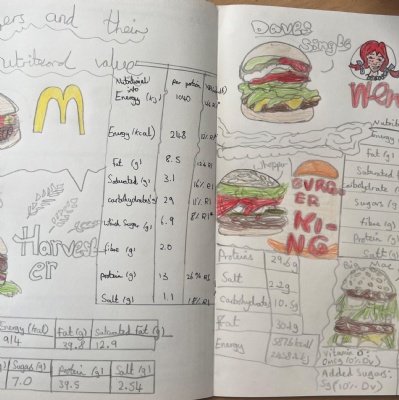 gers and their
nutritional value
Nutritional info
Per protein
Energy (kj) 1040
Energy (kcal) 248
Fat (g) 8.5
Saturated (g) 3.1
carbohydrates (g) 29
which Sugar (g) 6.9
fibre (g) 2.0
protein (g) 13 26% RI
Salt (g) 1.1 18% RI
Harvest
er
Energy (kcal) Fat (g) Saturated Fat (g)
914 39.8 12.9
Sugars (g) Protein (g) Salt (g)
7.0 39.5 2.54
Daves
Single
Wen
Nutriti
Energy
Fat (g)
Saturated f
Carbohydrate (g
Sugars (g)
Fibre (g)
Protein (g)
Salt (g)
Whopper
BURG
ER
KI
NG
Proteins 29.6g
Salt 2.2g
Carbohydrate 10.5g
Fat
Energy
Big Mac
Vitamin D:
0mcg (0% DV)
Added Sugars:
5g (10% DV)